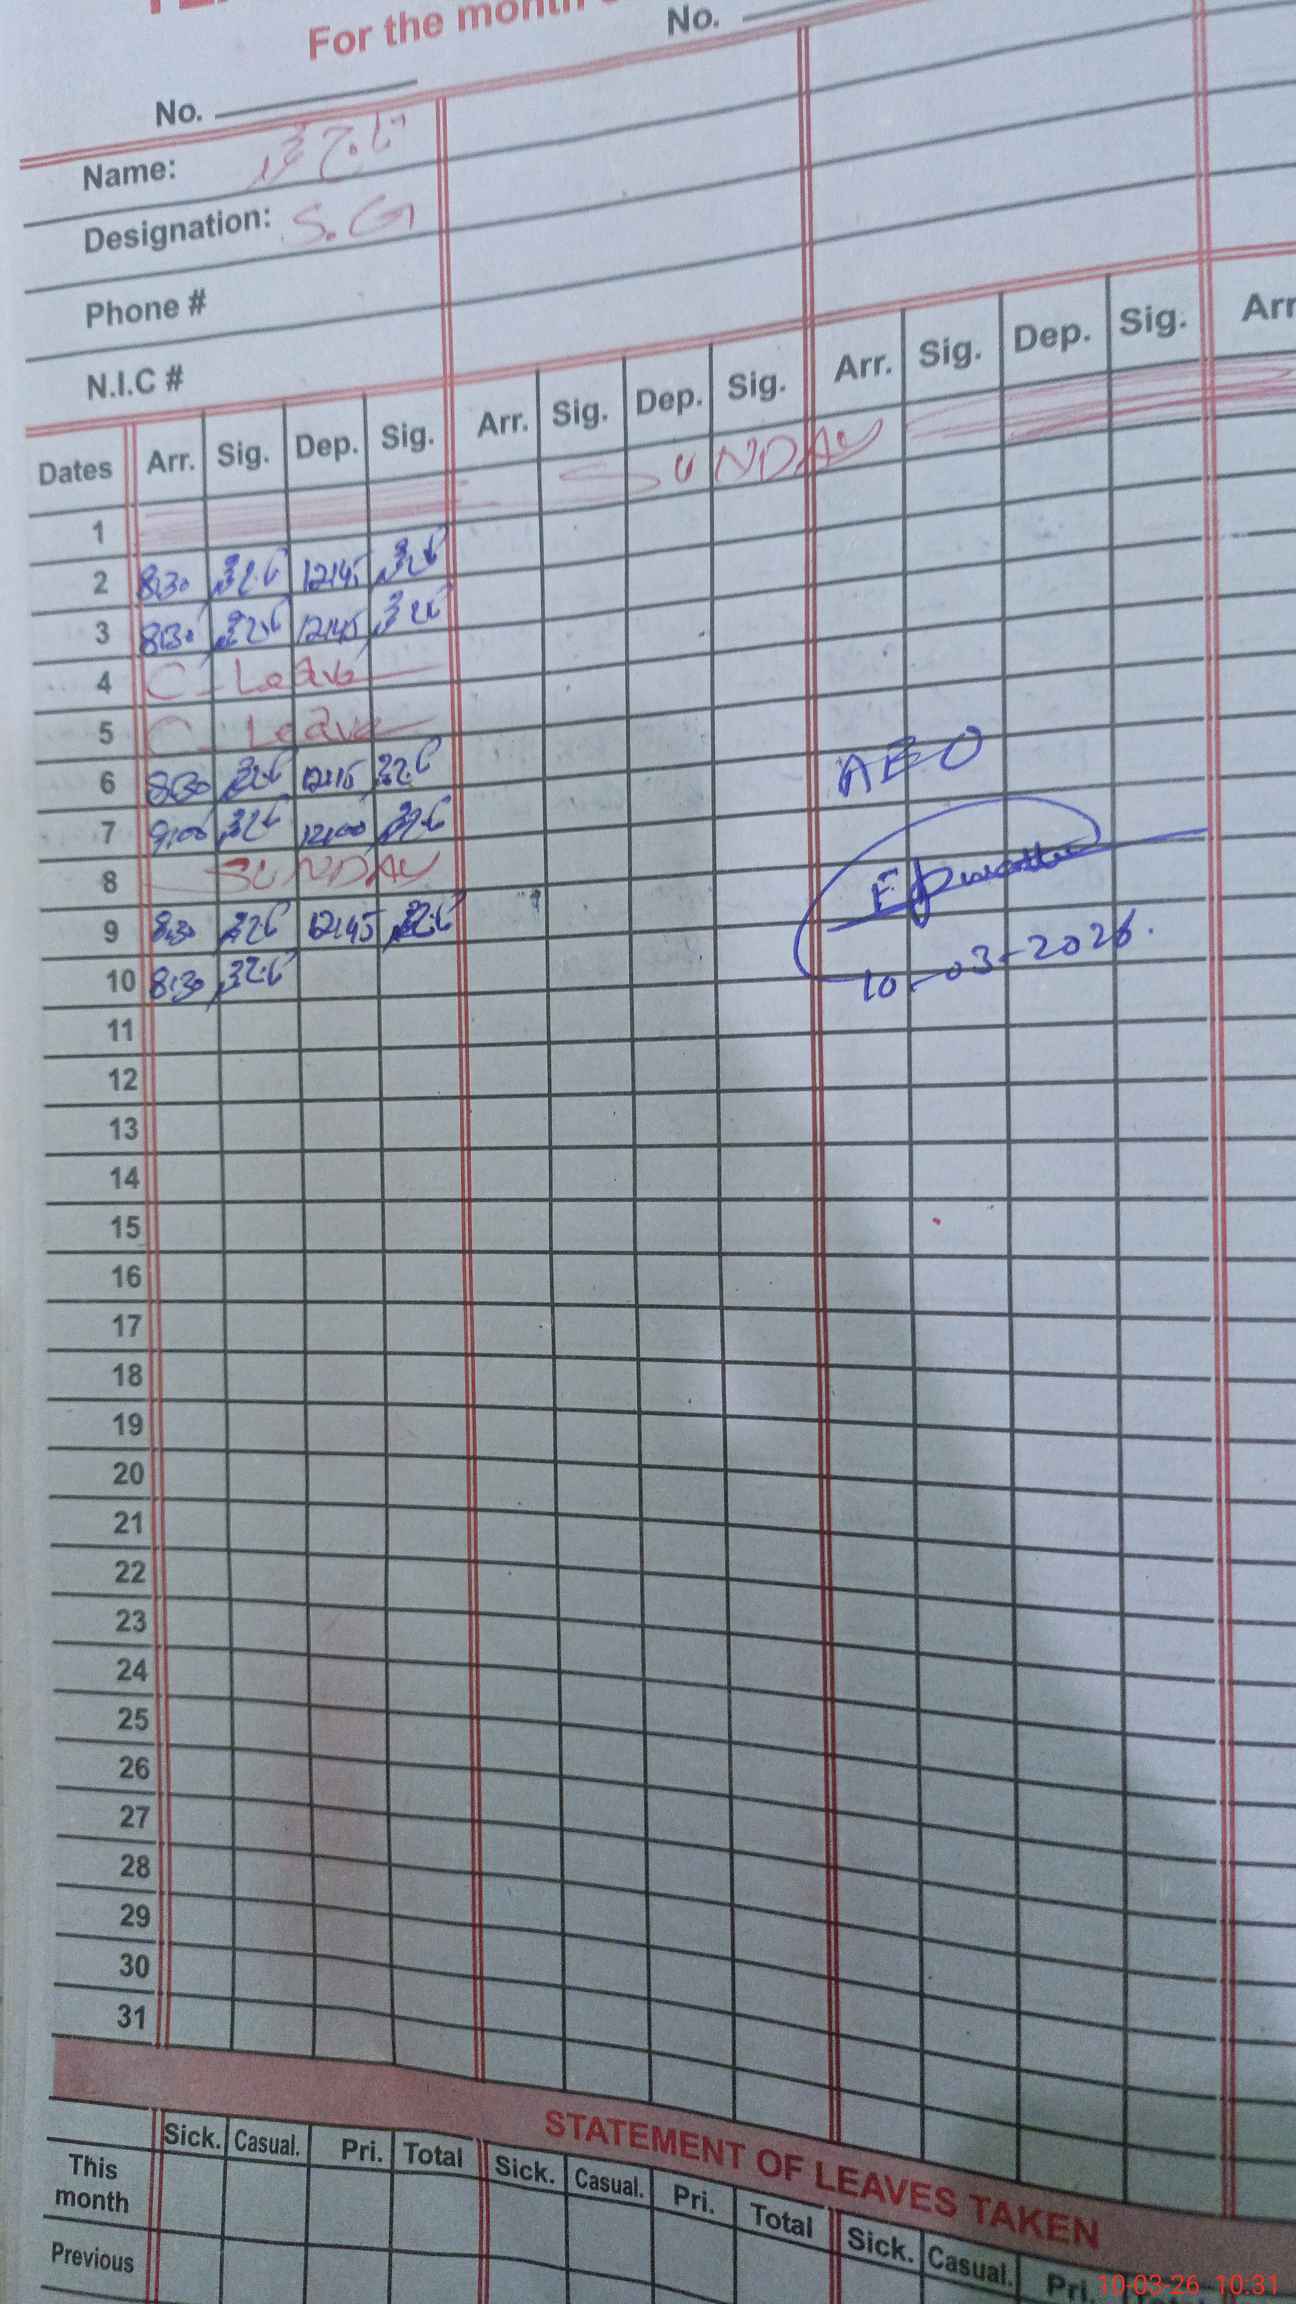 For the month
No.
No.
Name:
Designation: S.G
Phone #
N.I.C #
Dates Arr. Sig. Dep. Sig. Arr. Sig. Dep. Sig. Arr. Sig. Dep. Sig. Arr
1 SUNDAY
2 8:30 12:45
3 8:30 12:45
4 C-Leave
5 C-Leave
6 8:30 12:15
7 9:00 12:00
8 SUNDAY
9 8:30 12:45
10 8:30
AEO
10-03-2026.
11
12
13
14
15
16
17
18
19
20
21
22
23
24
25
26
27
28
29
30
31
STATEMENT OF LEAVES TAKEN
Sick. Casual. Pri. Total Sick. Casual. Pri. Total Sick. Casual. Pri.
This month
Previous
10-03-26 10:31